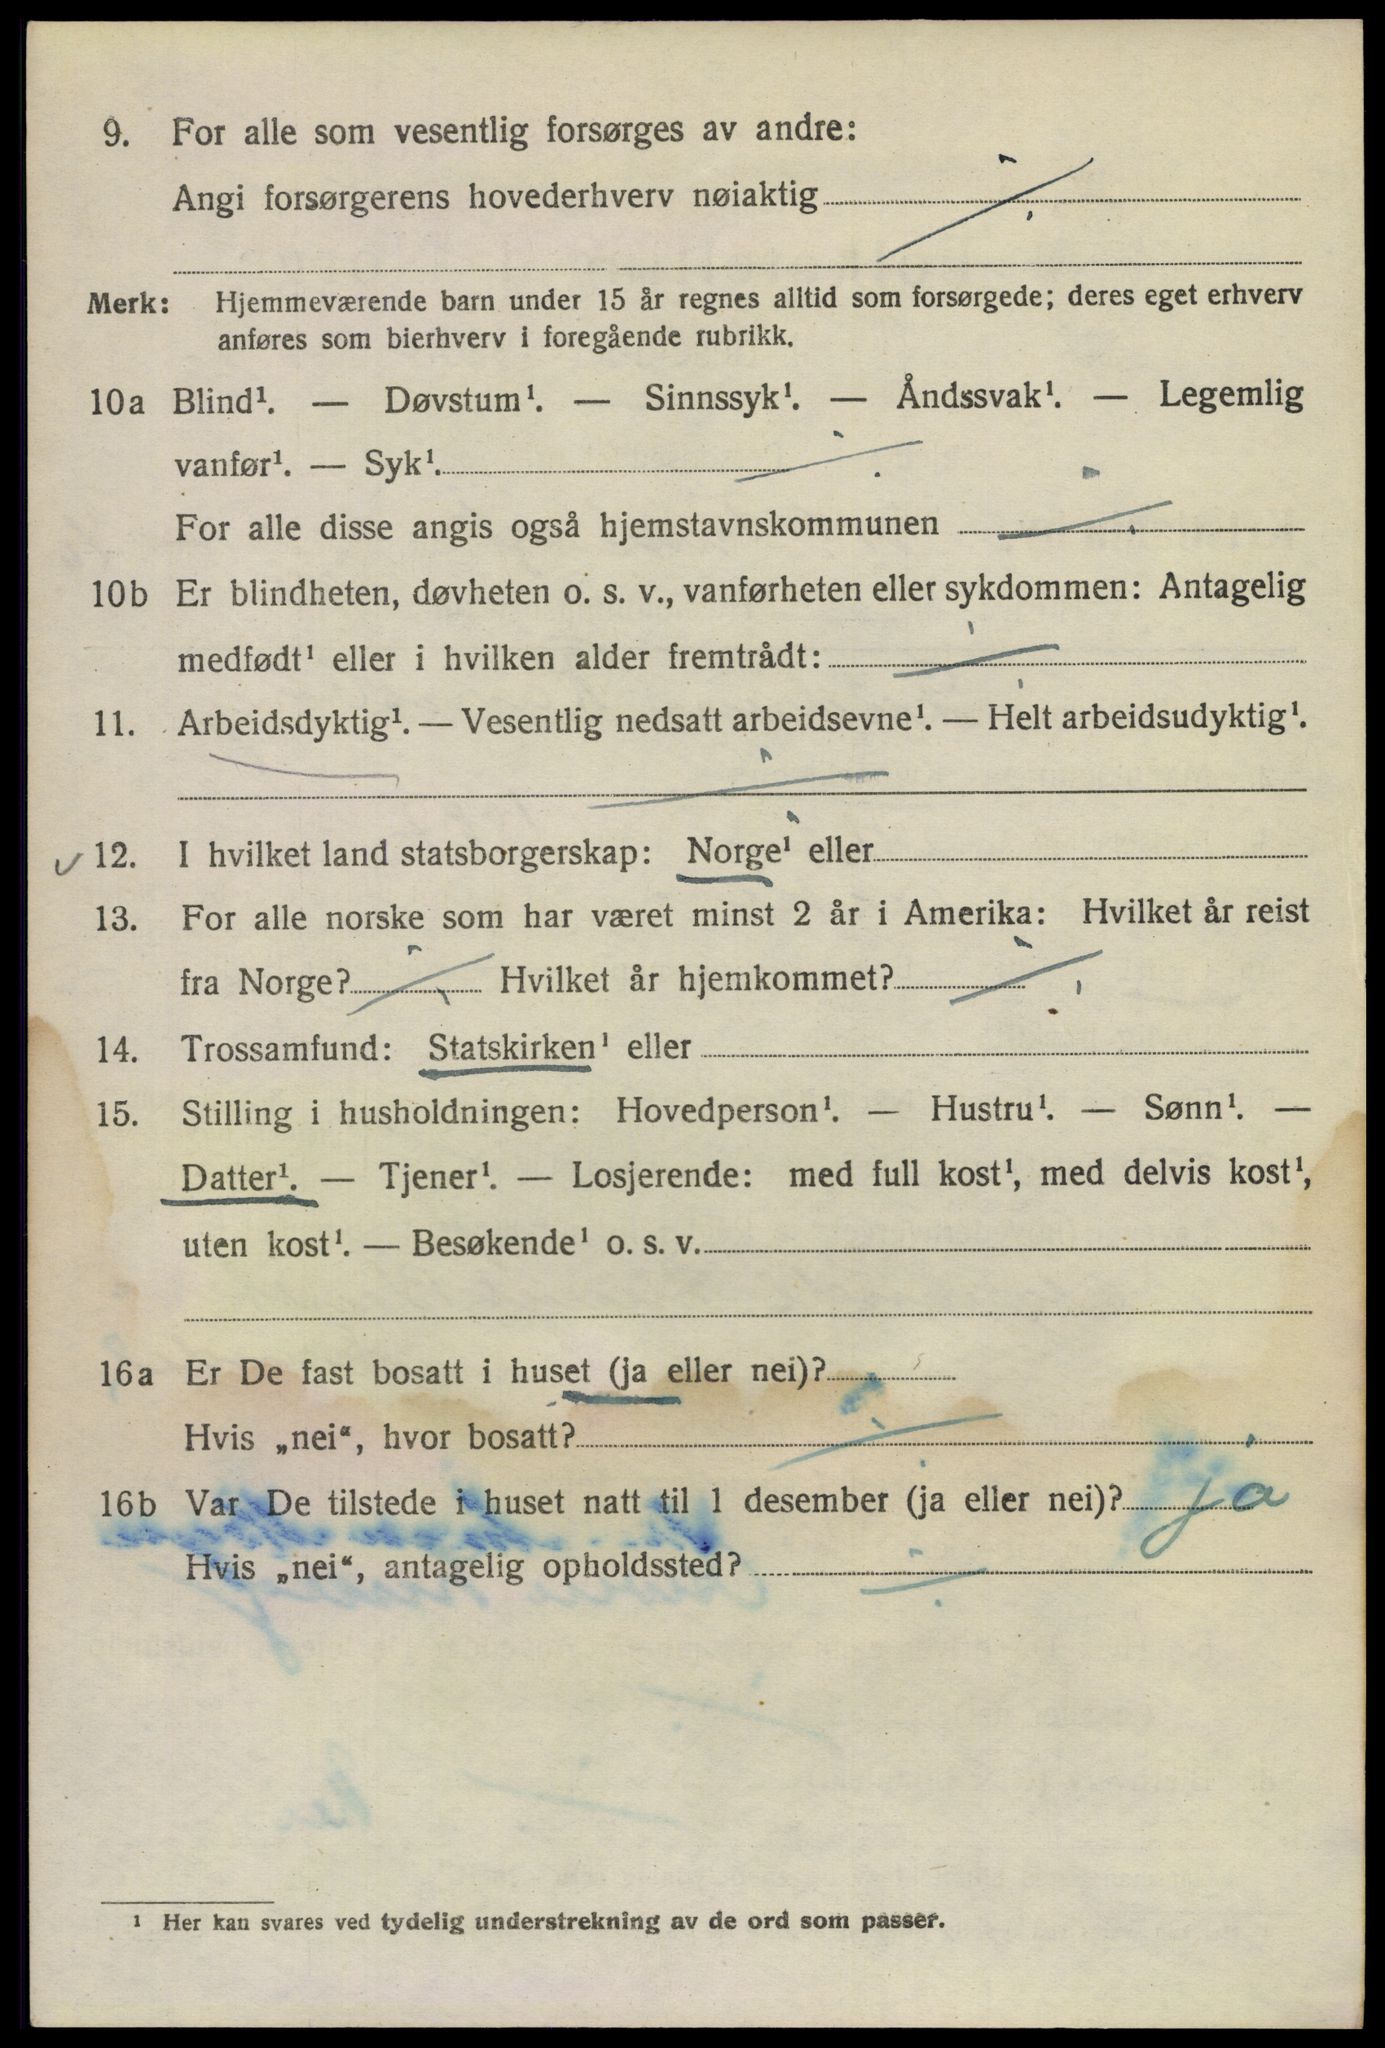 9. For alle som vesentlig forsørges av andre:
Angi forsørgerens hovederhverv nøiaktig ÷
Merk: Hjemmeværende barn under 15 år regnes alltid som forsørgede; deres eget erhverv
anføres som bierhverv i foregående rubrikk.
10a Blind¹. — Døvstum¹. — Sinnssyk¹. — Åndssvak¹. — Legemlig
vanfør¹. — Syk¹. ÷
For alle disse angis også hjemstavnskommunen ÷
10b Er blindheten, døvheten o. s. v., vanførheten eller sykdommen: Antagelig
medfødt¹ eller i hvilken alder fremtrådt: ÷
11. Arbeidsdyktig¹. — Vesentlig nedsatt arbeidsevne¹. — Helt arbeidsudyktig¹.
÷
12. I hvilket land statsborgerskap: Norge¹ eller
13. For alle norske som har været minst 2 år i Amerika: Hvilket år reist
fra Norge? ÷ Hvilket år hjemkommet? ÷
14. Trossamfund: Statskirken¹ eller
15. Stilling i husholdningen: Hovedperson¹. — Hustru¹. — Sønn¹. —
Datter¹. — Tjener¹. — Losjerende: med full kost¹, med delvis kost¹,
uten kost¹. — Besøkende¹ o. s. v.
16a Er De fast bosatt i huset (ja eller nei)?
Hvis „nei“, hvor bosatt? ÷
16b Var De tilstede i huset natt til 1 desember (ja eller nei)? ja
Hvis „nei“, antagelig opholdssted? ÷
¹ Her kan svares ved tydelig understrekning av de ord som passer.